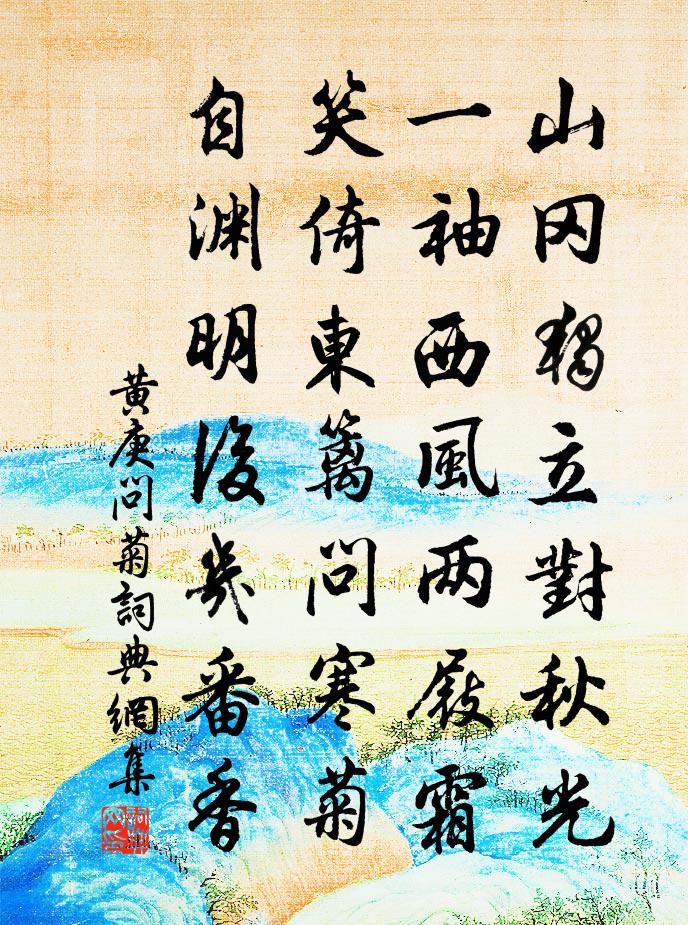 山冈獨立對秋光
一袖西風兩屐霜
笑倚東籬問寒菊
自渊明後幾番香
黄庚問菊詞典網集